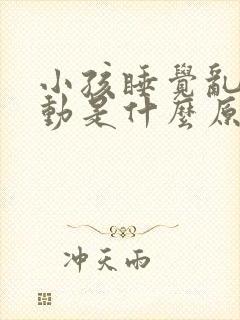 小孩睡覺亂
動是什麼原
冲天雨